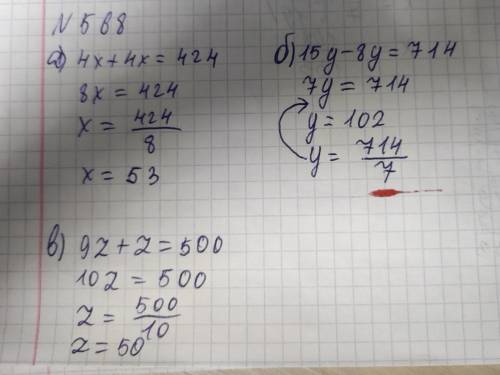 №568
а) 4x+4x=424
8x=424
x=424/8
x=53
б) 15y-8y=714
7y=714
y=102
y=714/7
в) 9z+z=500
10z=500
z=500/10
z=50